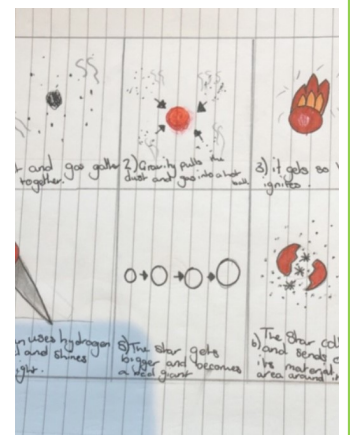 and gas gather
together.
2) Gravity pulls the
dust and gas into a hot
ball
3) it gets so
ignites.
uses hydrogen
and shines
5) The star gets
bigger and becomes
a Red giant
6) The Star
and sends
its material
area around